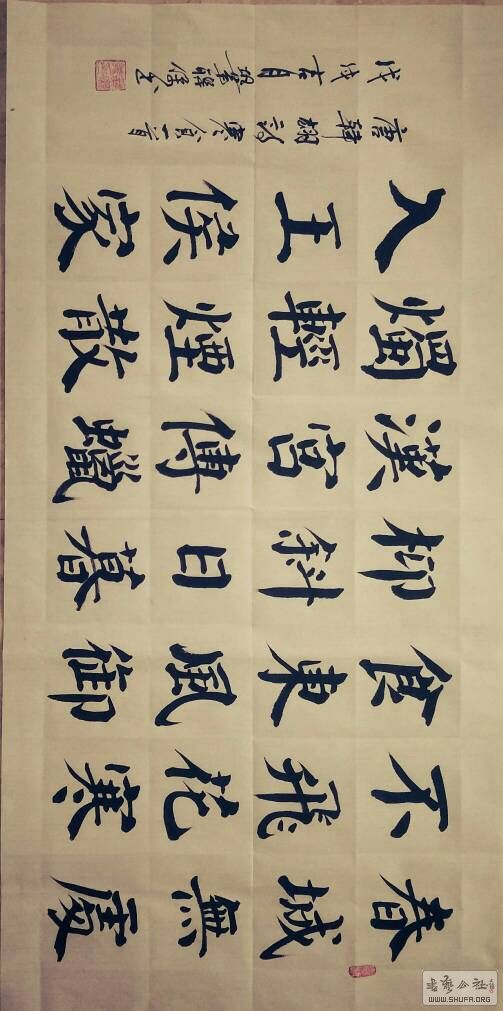 春城無處
不飛花寒
食東風御
柳斜日暮
漢宮傳蠟
燭輕煙散
入五侯家
唐韓翃詩寒食一首
戊戌吉月
WWW.SHUFA.ORG